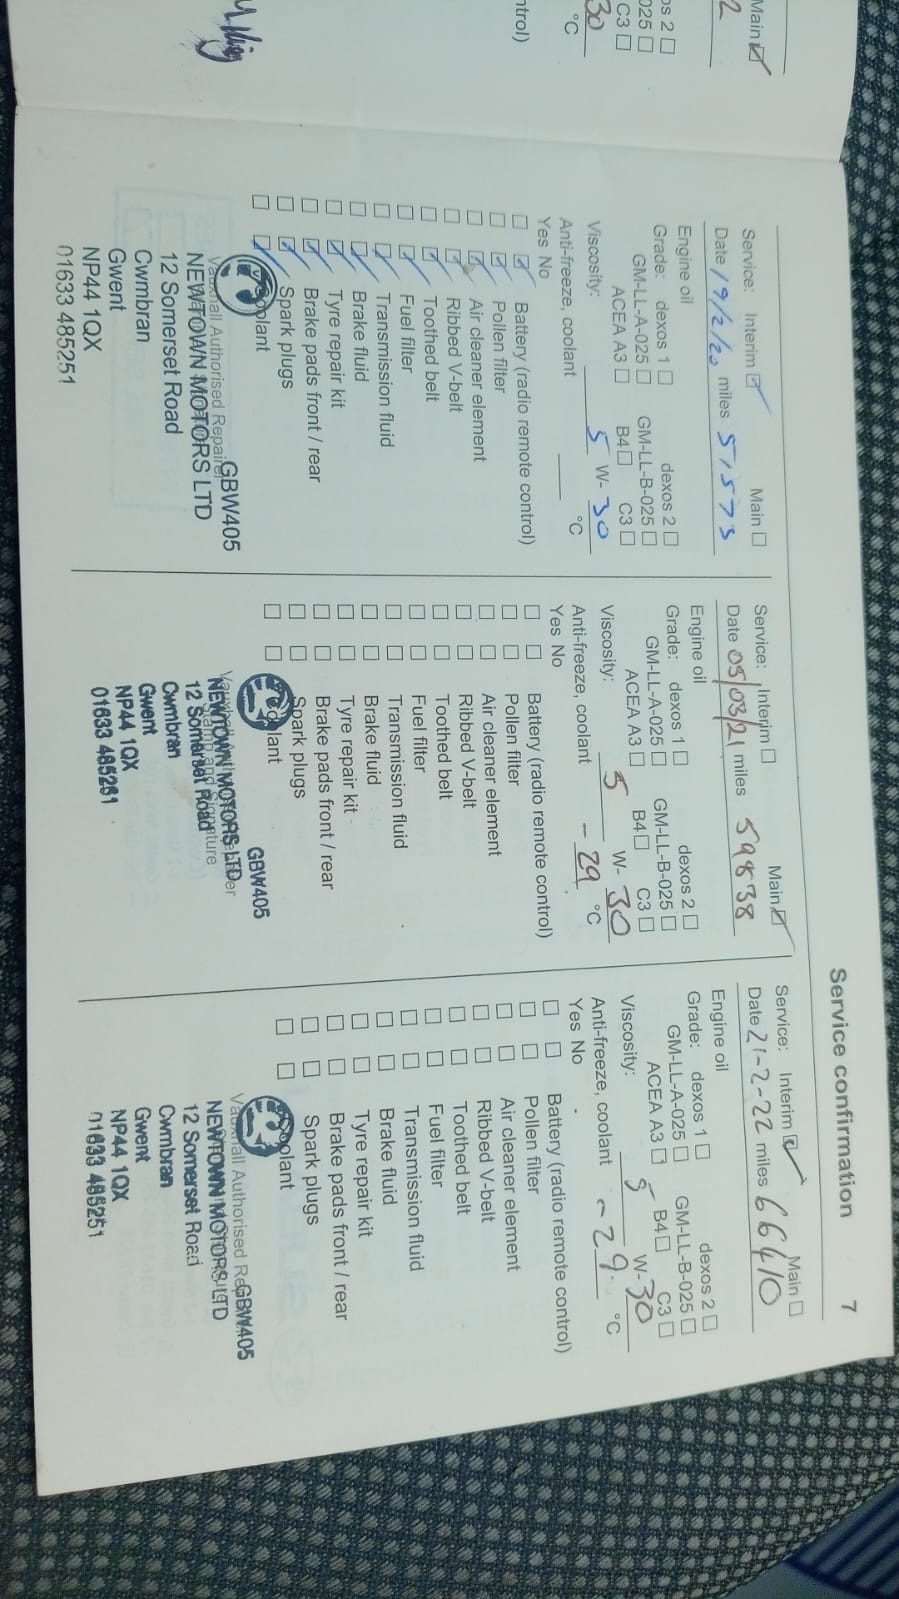 Main ☑
2
os 2 ☐
025 ☐
C3 ☐
30
°C
ntrol)
Service confirmation 7
Service: Interim ☑ Main ☐
Date 19/2/20 miles 51573
Engine oil
Grade: dexos 1 ☐ dexos 2 ☐
GM-LL-A-025 ☐ GM-LL-B-025 ☐
ACEA A3 ☐ B4 ☐ C3 ☐
Viscosity: 5 W- 30
Anti-freeze, coolant °C
Yes No
☐ ☑ Battery (radio remote control)
☐ ☑ Pollen filter
☐ ☑ Air cleaner element
☐ ☑ Ribbed V-belt
☐ ☑ Toothed belt
☐ ☑ Fuel filter
☐ ☑ Transmission fluid
☐ ☑ Brake fluid
☐ ☑ Tyre repair kit
☐ ☑ Brake pads front / rear
☐ ☑ Spark plugs
☐ ☑ Coolant
GBW405
Vauxhall Authorised Repairer
NEWTOWN MOTORS LTD
12 Somerset Road
Cwmbran
Gwent
NP44 1QX
01633 485251
Service: Interim ☐ Main ☑
Date 05/03/21 miles 59838
Engine oil
Grade: dexos 1 ☐ dexos 2 ☐
GM-LL-A-025 ☐ GM-LL-B-025 ☐
ACEA A3 ☐ B4 ☐ C3 ☐
Viscosity: 5 W- 30
Anti-freeze, coolant - 29 °C
Yes No
☐ ☐ Battery (radio remote control)
☐ ☐ Pollen filter
☐ ☐ Air cleaner element
☐ ☐ Ribbed V-belt
☐ ☐ Toothed belt
☐ ☐ Fuel filter
☐ ☐ Transmission fluid
☐ ☐ Brake fluid
☐ ☐ Tyre repair kit
☐ ☐ Brake pads front / rear
☐ ☐ Spark plugs
☐ ☐ Coolant
GBW405
NEWTOWN MOTORS LTD
Stamp and Signature
12 Somerset Road
Cwmbran
Gwent
NP44 1QX
01633 485251
Service: Interim ☑ Main ☐
Date 21-2-22 miles 66410
Engine oil
Grade: dexos 1 ☐ dexos 2 ☐
GM-LL-A-025 ☐ GM-LL-B-025 ☐
ACEA A3 ☐ B4 ☐ C3 ☐
Viscosity: 5 W- 30
Anti-freeze, coolant - 29 °C
Yes No
☐ ☐ Battery (radio remote control)
☐ ☐ Pollen filter
☐ ☐ Air cleaner element
☐ ☐ Ribbed V-belt
☐ ☐ Toothed belt
☐ ☐ Fuel filter
☐ ☐ Transmission fluid
☐ ☐ Brake fluid
☐ ☐ Tyre repair kit
☐ ☐ Brake pads front / rear
☐ ☐ Spark plugs
☐ ☐ Coolant
GBW405
Vauxhall Authorised Repairer
NEWTOWN MOTORS LTD
12 Somerset Road
Cwmbran
Gwent
NP44 1QX
01633 485251